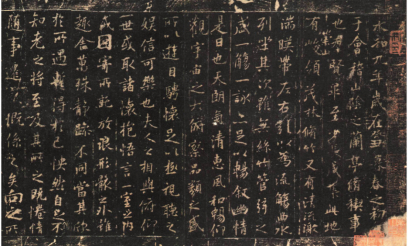 永和九年歲在癸丑暮春之初
于會稽山陰之蘭亭脩稧事
也羣賢畢至少長咸集此地
有峻領茂林脩竹又有清流激
湍暎帶左右引以為流觴曲水
列坐其次雖無絲竹管絃之
盛一觴一詠亦足以暢敘幽情
是日也天朗氣清惠風和暢仰
觀宇宙之大俯察品類之盛
所以遊目騁懷足以極視聽之
娛信可樂也夫人之相與俯仰
一世或取諸懷抱悟言一室之內
或因寄所託放浪形骸之外雖
趣舍萬殊靜躁不同當其欣
於所遇暫得於己怏然自足不
知老之將至及其所之既惓情
隨事遷感慨係之矣向之所